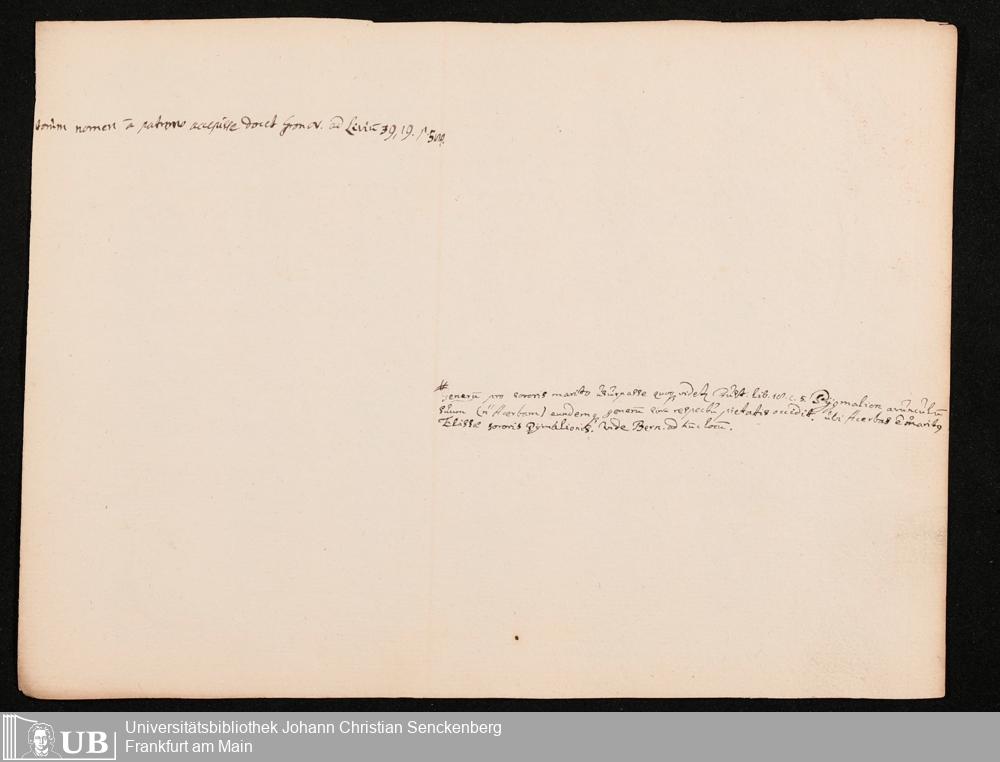 nomen a patrono accepisse docet Gronov. ad Liviū 39, 19. p. 509.
generū pro sororis marito usurpasse quoq videt Just. lib. 18. c. 5. Pygmalion avunculū
suum (n. Acerbam) eundemq generū sine respectu pietatis occidit. ubi Acerbas ē maritus
Elissæ sororis Pygmalionis. vide Bern. ad hūc locū.
Universitätsbibliothek Johann Christian Senckenberg
Frankfurt am Main
UB